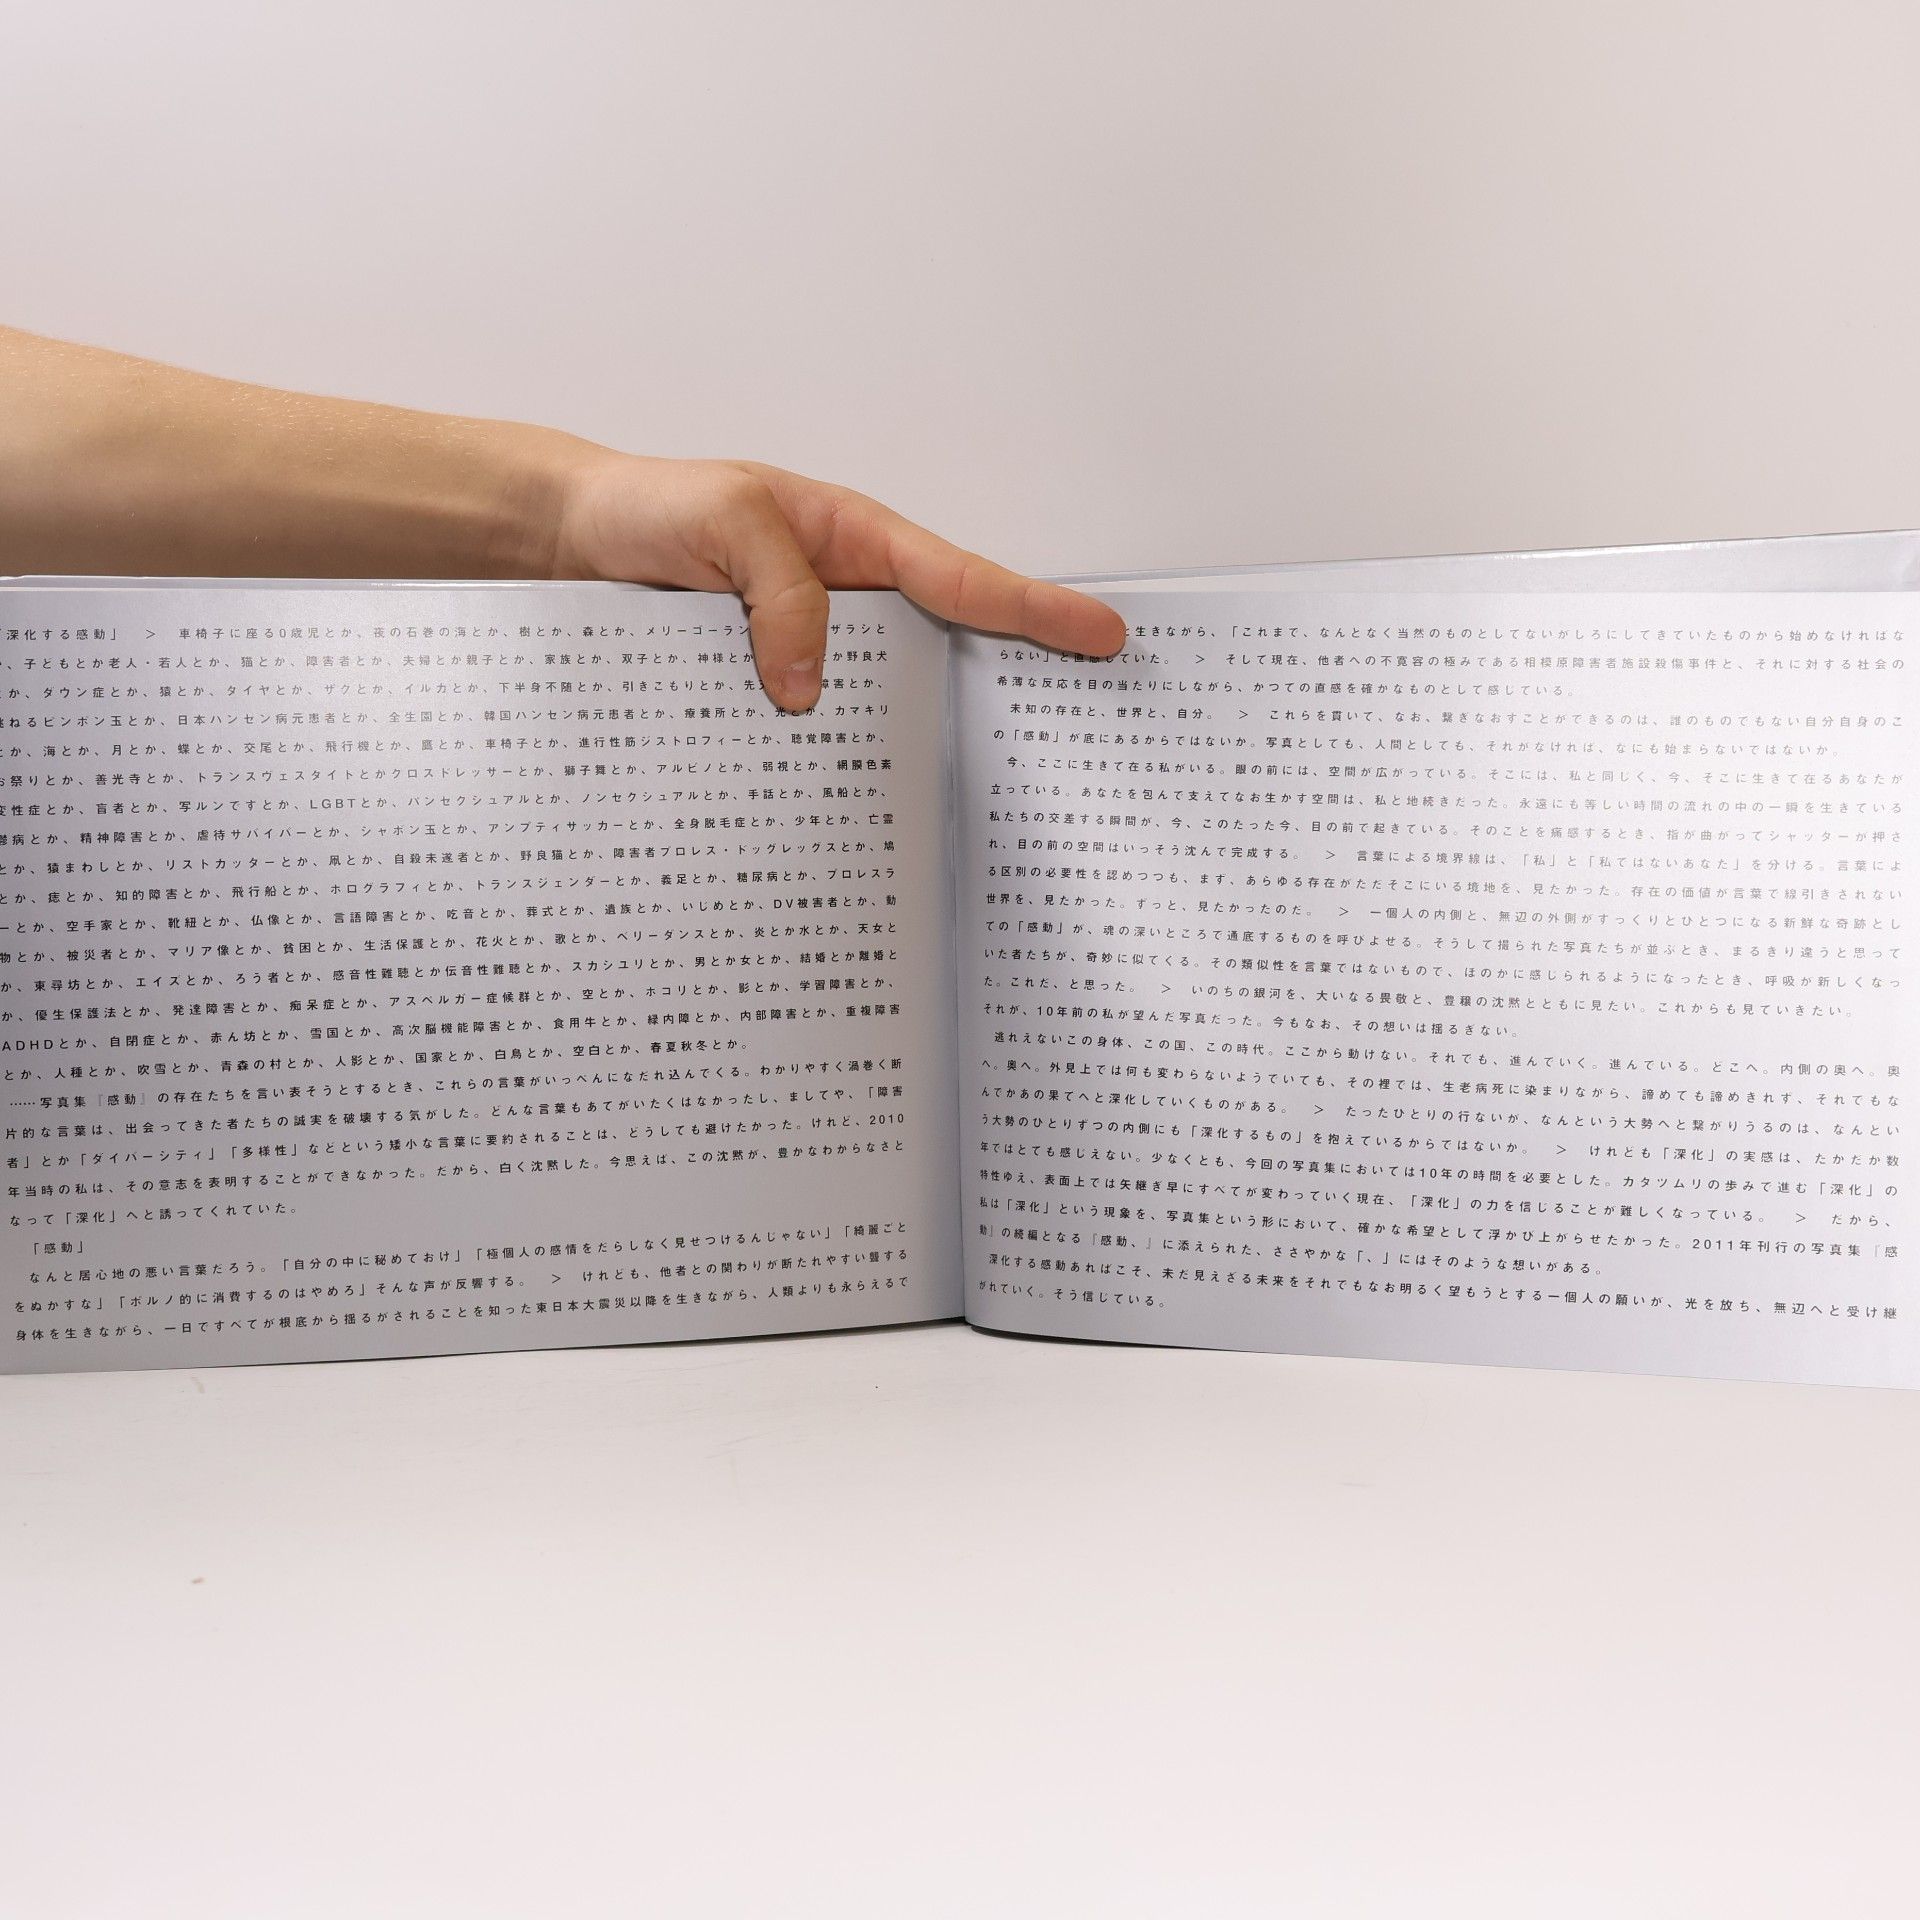 「深化する感動」　>　車椅子に座る0歳児とか、夜の石巻の海とか、樹とか、森とか、メリーゴーラン ザラシと
、子どもとか老人・若人とか、猫とか、障害者とか、夫婦とか親子とか、家族とか、双子とか、神様とか か野良犬
とか、ダウン症とか、猿とか、タイヤとか、ザクとか、イルカとか、下半身不随とか、引きこもりとか、先天 障害とか、
跳ねるピンポン玉とか、日本ハンセン病元患者とか、全生園とか、韓国ハンセン病元患者とか、療養所とか、光とか、カマキリ
とか、海とか、月とか、蝶とか、交尾とか、飛行機とか、鷹とか、車椅子とか、進行性筋ジストロフィーとか、聴覚障害とか、
お祭りとか、善光寺とか、トランスヴェスタイトとかクロスドレッサーとか、獅子舞とか、アルビノとか、弱視とか、網膜色素
変性症とか、盲者とか、写ルンですとか、LGBTとか、パンセクシュアルとか、ノンセクシュアルとか、手話とか、風船とか、
鬱病とか、精神障害とか、虐待サバイバーとか、シャボン玉とか、アンプティサッカーとか、全身脱毛症とか、少年とか、亡霊
とか、猿まわしとか、リストカッターとか、凧とか、自殺未遂者とか、野良猫とか、障害者プロレス・ドッグレッグスとか、鳩
とか、痣とか、知的障害とか、飛行船とか、ホログラフィとか、トランスジェンダーとか、義足とか、糖尿病とか、プロレスラ
ーとか、空手家とか、靴紐とか、仏像とか、言語障害とか、吃音とか、葬式とか、遺族とか、いじめとか、DV被害者とか、動
物とか、被災者とか、マリア像とか、貧困とか、生活保護とか、花火とか、歌とか、ベリーダンスとか、炎とか水とか、天女と
か、東尋坊とか、エイズとか、ろう者とか、感音性難聴とか伝音性難聴とか、スカシユリとか、男とか女とか、結婚とか離婚と
か、優生保護法とか、発達障害とか、痴呆症とか、アスペルガー症候群とか、空とか、ホコリとか、影とか、学習障害とか、
ADHDとか、自閉症とか、赤ん坊とか、雪国とか、高次脳機能障害とか、食用牛とか、緑内障とか、内部障害とか、重複障害
とか、人種とか、吹雪とか、青森の村とか、人影とか、国家とか、白鳥とか、空白とか、春夏秋冬とか。
……写真集『感動』の存在たちを言い表そうとするとき、これらの言葉がいっぺんになだれ込んでくる。わかりやすく渦巻く断
片的な言葉は、出会ってきた者たちの誠実を破壊する気がした。どんな言葉もあてがいたくはなかったし、ましてや、「障害
者」とか「ダイバーシティ」「多様性」などという矮小な言葉に要約されることは、どうしても避けたかった。けれど、2010
年当時の私は、その意志を表明することができなかった。だから、白く沈黙した。今思えば、この沈黙が、豊かなわからなさと
なって「深化」へと誘ってくれていた。
「感動」
なんと居心地の悪い言葉だろう。「自分の中に秘めておけ」「極個人の感情をだらしなく見せつけるんじゃない」「綺麗ごと
をぬかすな」「ポルノ的に消費するのはやめろ」そんな声が反響する。　>　けれども、他者との関わりが断たれやすい聾する
身体を生きながら、一日ですべてが根底から揺るがされることを知った東日本大震災以降を生きながら、人類よりも永らえるで
と生きながら、「これまで、なんとなく当然のものとしてないがしろにしてきていたものから始めなければな
らない」と直感していた。　>　そして現在、他者への不寛容の極みである相模原障害者施設殺傷事件と、それに対する社会の
希薄な反応を目の当たりにしながら、かつての直感を確かなものとして感じている。
未知の存在と、世界と、自分。　>　これらを貫いて、なお、繋ぎなおすことができるのは、誰のものでもない自分自身のこ
の「感動」が底にあるからではないか。写真としても、人間としても、それがなければ、なにも始まらないではないか。
今、ここに生きて在る私がいる。眼の前には、空間が広がっている。そこには、私と同じく、今、そこに生きて在るあなたが
立っている。あなたを包んで支えてなお生かす空間は、私と地続きだった。永遠にも等しい時間の流れの中の一瞬を生きている
私たちの交差する瞬間が、今、このたった今、目の前で起きている。そのことを痛感するとき、指が曲がってシャッターが押さ
れ、目の前の空間はいっそう沈んで完成する。　>　言葉による境界線は、「私」と「私ではないあなた」を分ける。言葉によ
る区別の必要性を認めつつも、まず、あらゆる存在がただそこにいる境地を、見たかった。存在の価値が言葉で線引きされない
世界を、見たかった。ずっと、見たかったのだ。　>　一個人の内側と、無辺の外側がすっくりとひとつになる新鮮な奇跡とし
ての「感動」が、魂の深いところで通底するものを呼びよせる。そうして撮られた写真たちが並ぶとき、まるきり違うと思って
いた者たちが、奇妙に似てくる。その類似性を言葉ではないもので、ほのかに感じられるようになったとき、呼吸が新しくなっ
た。これだ、と思った。　>　いのちの銀河を、大いなる畏敬と、豊穣の沈黙とともに見たい。これからも見ていきたい。
それが、10年前の私が望んだ写真だった。今もなお、その想いは揺るぎない。
逃れえないこの身体、この国、この時代。ここから動けない。それでも、進んでいく。進んでいる。どこへ。内側の奥へ。奥
へ。奥へ。外見上では何も変わらないようでいても、その裡では、生老病死に染まりながら、諦めても諦めきれず、それでもな
んでかあの果てへと深化していくものがある。　>　たったひとりの行ないが、なんという大勢へと繋がりうるのは、なんとい
う大勢のひとりずつの内側にも「深化するもの」を抱えているからではないか。　>　けれども「深化」の実感は、たかだか数
年ではとても感じえない。少なくとも、今回の写真集においては10年の時間を必要とした。カタツムリの歩みで進む「深化」の
特性ゆえ、表面上では矢継ぎ早にすべてが変わっていく現在、「深化」の力を信じることが難しくなっている。　>　だから、
私は「深化」という現象を、写真集という形において、確かな希望として浮かび上がらせたかった。2011年刊行の写真集『感
動』の続編となる『感動、』に添えられた、ささやかな「、」にはそのような想いがある。
深化する感動あればこそ、未だ見えざる未来をそれでもなお明るく望もうとする一個人の願いが、光を放ち、無辺へと受け継
がれていく。そう信じている。